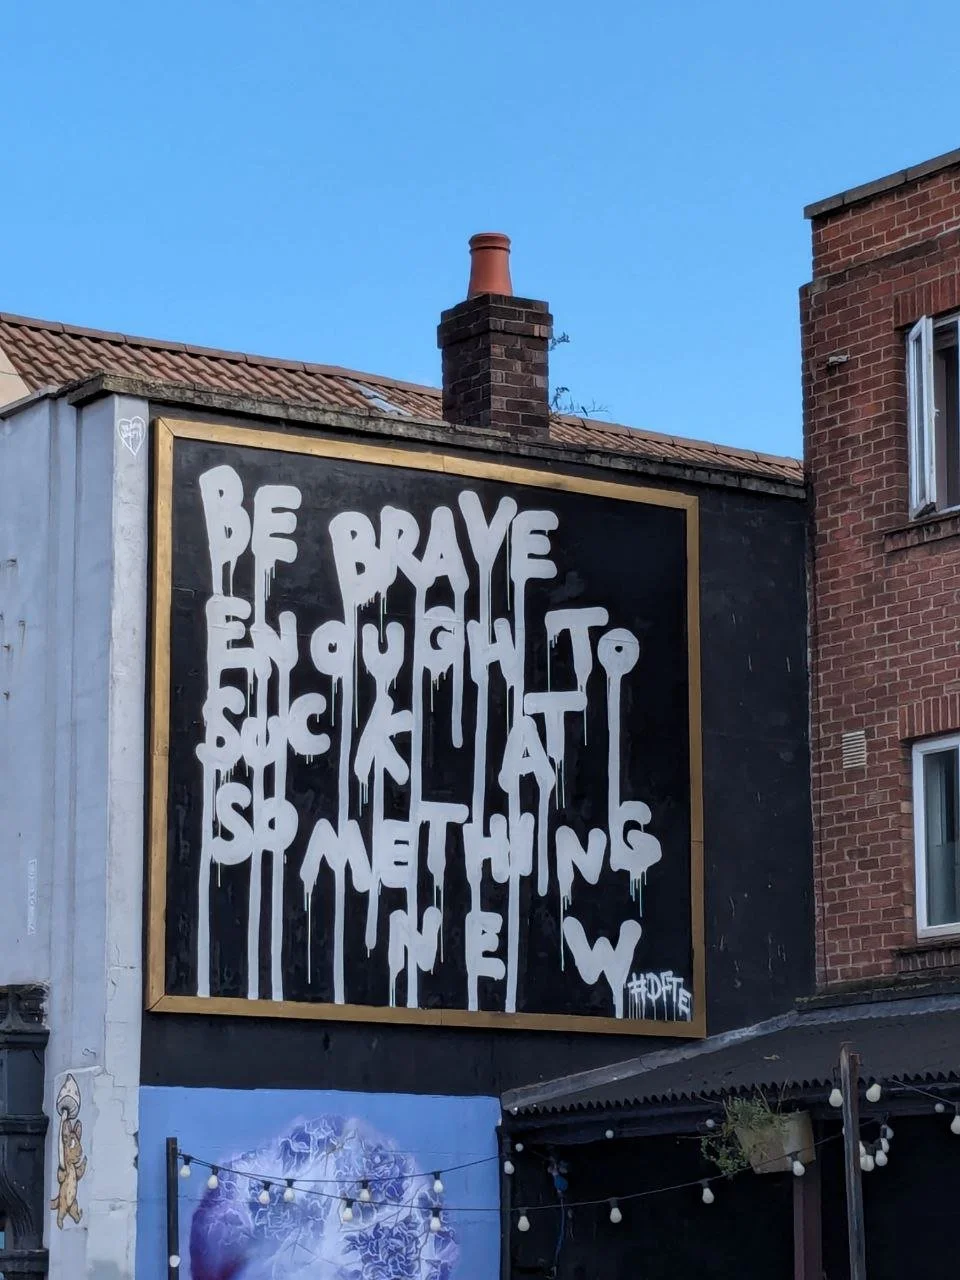 BE BRAVE
ENOUGH TO
SUCK AT
SOMETHING
NEW
#DFTE